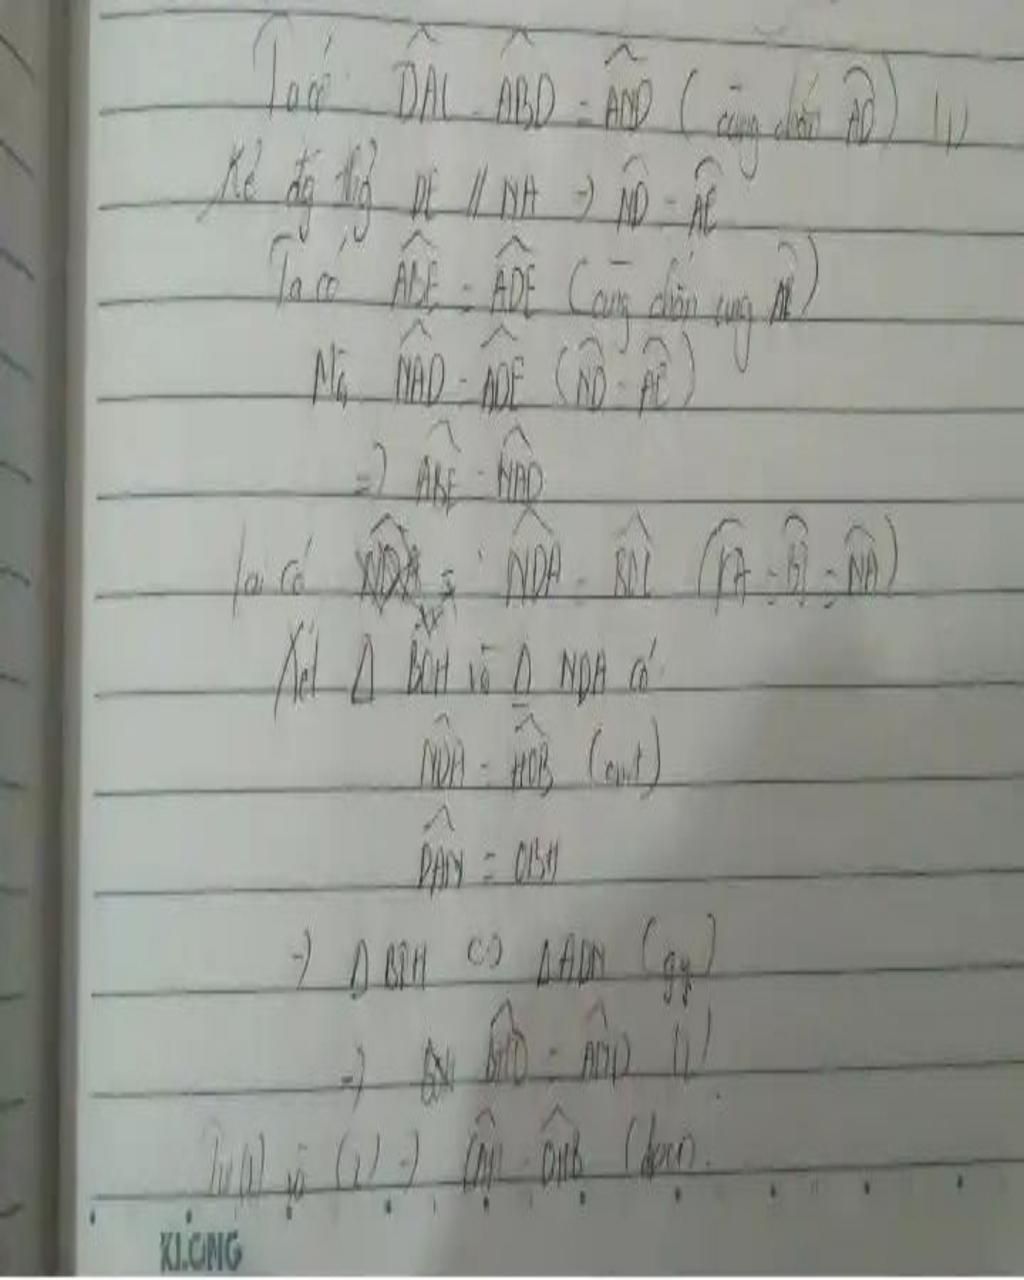 Ta có DAC = ABD = AND (cùng chắn AD) (1)
Kẻ đg thg DE // NA => ND = AE
Ta có ABE = ADE (cùng chắn cung AE)
Mà NAD = ADE (ND = AE)
=> ABE = NAD
Lại có NDA = (IA = BI = NA)
Xét Δ BDH và Δ NDA có
NDA = HDB (cmt)
= DBH
=> Δ BDH ∽ Δ ADN (gg)
=> BHD = AND (2)
Từ (1) và (2) => = DHB (đpcm)
KLONG